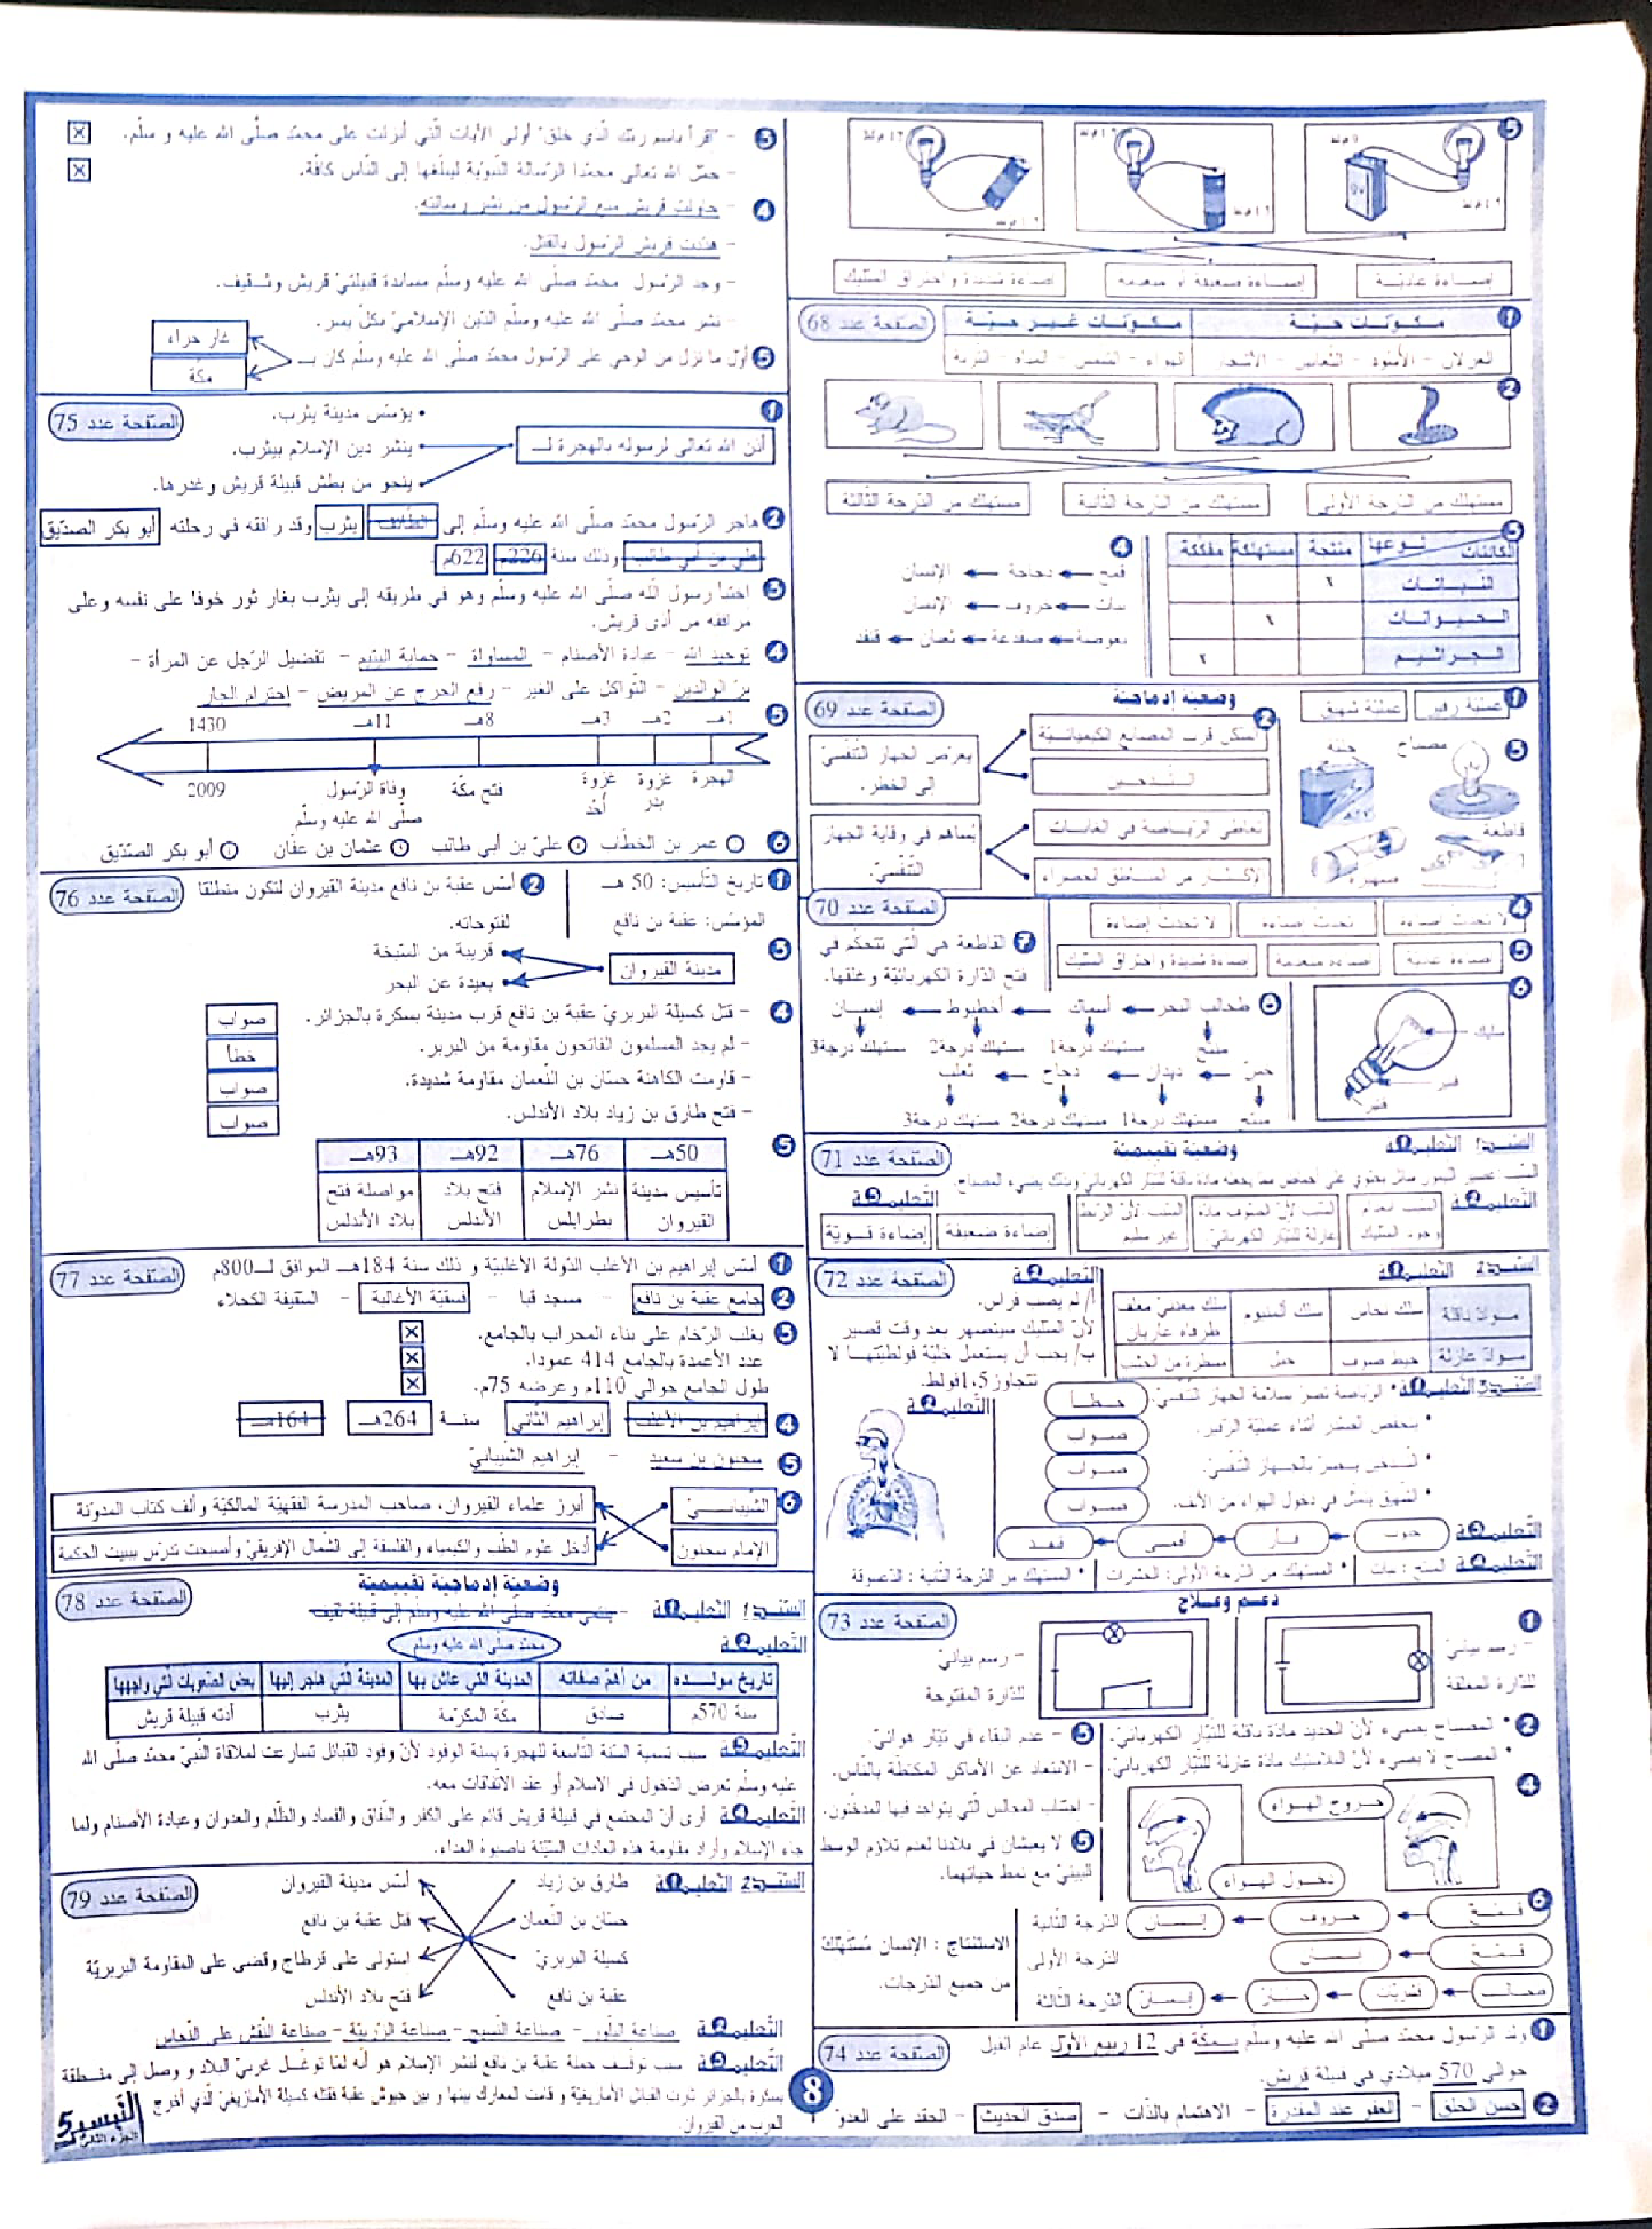 إضاءة عادية
إضاءة ضعيفة أو منعدمة
إضاءة شديدة واحتراق السّلك
الصّفحة عدد 68
مكوّنات حيّة
مكوّنات غير حيّة
الغزلان - الأسود - الثّعابين - الأشجار
الهواء - الشمس - المياه - التّربة
مستهلك من الدّرجة الأولى
مستهلك من الدّرجة الثّانية
مستهلك من الدّرجة الثّالثة
الكائنات
نوعها
منتجة
مستهلكة
مفكّكة
النّباتات
الحيوانات
الجراثيم
قمح
دجاجة
الإنسان
نبات
خروف
الإنسان
بعوضة
ضفدعة
ثعبان
قنفد
الصّفحة عدد 69
وضعيّة إدماجيّة
عمليّة زفير
عمليّة شهيق
السّكن قرب المصانع الكيميائيّة
التّدخين
يعرّض الجهاز التّنفّسيّ
إلى الخطر.
تعاطي الرّياضة في الغابات
الإكثار من المناطق الخضراء
يُساهم في وقاية الجهاز
التّنفّسيّ.
مصباح
قاطعة
الصّفحة عدد 70
لا تحدث إضاءة
تحدث إضاءة
لا تحدث إضاءة
إضاءة عادية
إضاءة ضعيفة
إضاءة شديدة واحتراق السّلك
القاطعة هي الّتي تتحكّم في
فتح الدّارة الكهربائيّة وغلقها.
سليك
طحالب البحر
أسماك
أخطبوط
إنسان
منتج
مستهلك درجة1
مستهلك درجة2
مستهلك درجة3
خسّ
ديدان
دجاج
ثعلب
منتج
مستهلك درجة1
مستهلك درجة2
مستهلك درجة3
الصّفحة عدد 71
وضعيّة تقييميّة
السّند1 التّعليمة1
التّعليمة2
السّبب انعدام وجود السّليك
السّبب لأنّ الصّوف مادّة عازلة للتّيّار الكهربائيّ
السّبب لأنّ الرّبط غير سليم
التّعليمة3
إضاءة ضعيفة
إضاءة قويّة
الصّفحة عدد 72
السّند2 التّعليمة1
موادّ ناقلة
سلك نحاس
سلك ألمنيوم
سلك معدنيّ مغلّف طرفاه عاريان
موادّ عازلة
خيط صوف
حبل
مسطرة من الخشب
التّعليمة2
أ/ لم يصب فراس.
لأنّ السّليك سينصهر بعد وقت قصير
ب/ يجب أن يستعمل خليّة فولطيّتها لا
تتجاوز 1،5فولط.
السّند3 التّعليمة1
الرّياضة تضرّ بسلامة الجهاز التّنفّسيّ.
خطأ
ينخفض الصّدر أثناء عمليّة الزّفير.
صواب
التّدخين يضرّ بالجهاز التّنفّسيّ.
صواب
الشّهيق يتمثّل في دخول الهواء من الأنف.
صواب
التّعليمة2
التّعليمة3
حبوب
فأر
أفعى
قنفد
التّعليمة4
المنتج : نبات
المستهلك من الدّرجة الأولى: الحشرات
الصّفحة عدد 73
دعم وعلاج
- رسم بيانيّ
للدّارة المغلقة
- رسم بيانيّ
للدّارة المفتوحة
المصباح يضيء لأنّ الحديد مادّة ناقلة للتّيّار الكهربائيّ.
المصباح لا يضيء لأنّ البلاستيك مادّة عازلة للتّيّار الكهربائيّ.
- عدم البقاء في تيّار هوائيّ.
- الابتعاد عن الأماكن المكتظّة بالنّاس.
- اجتناب المجالس الّتي يتواجد فيها المدخّنون.
خروج الهواء
دخول الهواء
لا يعيشان في بلادنا لعدم تلاؤم الوسط
البيئيّ مع نمط حياتهما.
قمح
خروف
إنسان
الدّرجة الثّانية
قمح
إنسان
الدّرجة الأولى
إنسان
الدّرجة الثّالثة
الاستنتاج : الإنسان مُستَهلك
من جميع الدّرجات.
الصّفحة عدد 74
ولد الرّسول محمّد صلّى الله عليه وسلّم بمكّة في 12 ربيع الأوّل عام الفيل
حوالي 570 ميلادي في قبيلة قريش.
حسن الخلق - العفو عند المقدرة - الاهتمام بالذّات - صدق الحديث - الحقد على العدوّ
- "اقرأ باسم ربّك الّذي خلق" أولى الآيات الّتي أنزلت على محمّد صلّى الله عليه و سلّم.
- حمّل الله تعالى محمّدا الرّسالة النّبويّة ليبلّغها إلى النّاس كافّة.
- حاولت قريش منع الرّسول من نشر رسالته.
- هدّدت قريش الرّسول بالقتل.
- وجد الرّسول محمّد صلّى الله عليه وسلّم مساندة قبيلتيْ قريش وثقيف.
- نشر محمّد صلّى الله عليه وسلّم الدّين الإسلاميّ بكلّ يسر.
أوّل ما نزل من الوحي على الرّسول محمّد صلّى الله عليه وسلّم كان بـ
غار حراء
مكّة
الصّفحة عدد 75
أذن الله تعالى لرسوله بالهجرة لـ
يؤسّس مدينة يثرب.
ينشر دين الإسلام بيثرب.
ينجو من بطش قبيلة قريش وغدرها.
هاجر الرّسول محمّد صلّى الله عليه وسلّم إلى الطّائف يثرب وقد رافقه في رحلته أبو بكر الصدّيق
علي بن أبي طالب وذلك سنة 226م 622م.
اختبأ رسول الله صلّى الله عليه وسلّم وهو في طريقه إلى يثرب بغار ثور خوفا على نفسه وعلى
مرافقه من أذى قريش.
توحيد الله - عبادة الأصنام - المساواة - حماية اليتيم - تفضيل الرّجل عن المرأة -
برّ الوالدين - التّواكل على الغير - رفع الحرج عن المريض - احترام الجار
1هـ 2هـ 3هـ 8هـ 11هـ 1430
الهجرة
غزوة بدر
غزوة أحد
فتح مكّة
وفاة الرّسول
صلّى الله عليه وسلّم
2009
عمر بن الخطّاب علي بن أبي طالب عثمان بن عفّان أبو بكر الصّدّيق
الصّفحة عدد 76
تاريخ التّأسيس: 50 هـ
المؤسّس: عقبة بن نافع
أسّس عقبة بن نافع مدينة القيروان لتكون منطلقا
لفتوحاته.
مدينة القيروان
قريبة من السّبخة
بعيدة عن البحر
- قتل كسيلة البربريّ عقبة بن نافع قرب مدينة بسكرة بالجزائر.
صواب
- لم يجد المسلمون الفاتحون مقاومة من البربر.
خطأ
- قاومت الكاهنة حسّان بن النّعمان مقاومة شديدة.
صواب
- فتح طارق بن زياد بلاد الأندلس.
صواب
50هـ 76هـ 92هـ 93هـ
تأسيس مدينة القيروان
نشر الإسلام بطرابلس
فتح بلاد الأندلس
مواصلة فتح بلاد الأندلس
الصّفحة عدد 77
أسّس إبراهيم بن الأغلب الدّولة الأغلبيّة و ذلك سنة 184هـ الموافق لـ800م
جامع عقبة بن نافع - مسجد قبا - فسقيّة الأغالبة - السّقيفة الكحلاء
يغلب الرّخام على بناء المحراب بالجامع.
عدد الأعمدة بالجامع 414 عمودا.
طول الجامع حوالي 110م وعرضه 75م.
إبراهيم بن الأغلب إبراهيم الثّاني سنة 264هـ 164هـ
سحنون بن سعيد - إبراهيم الشّيبانيّ
الشّيبانيّ
الإمام سحنون
أبرز علماء القيروان، صاحب المدرسة الفقهيّة المالكيّة وألّف كتاب المدوّنة
أدخل علوم الطّب والكيمياء والفلسفة إلى الشّمال الإفريقيّ وأصبحت تدرّس ببيت الحكمة
الصّفحة عدد 78
وضعيّة إدماجيّة تقييميّة
السّند1 التّعليمة1 - ينتمي محمّد صلّى الله عليه وسلّم إلى قبيلة ثقيف
التّعليمة2
محمّد صلّى الله عليه وسلّم
تاريخ مولده
من أهمّ صفاته
المدينة الّتي عاش بها
المدينة الّتي هاجر إليها
بعض الصّعوبات الّتي واجهها
سنة 570م
صادق
مكّة المكرّمة
يثرب
أذته قبيلة قريش
التّعليمة3 سبب تسمية السّنة التّاسعة للهجرة بسنة الوفود لأنّ وفود القبائل تسارعت لملاقاة النّبيّ محمّد صلّى الله
عليه وسلّم تعرض الدّخول في الاسلام أو عقد الاتّفاقات معه.
التّعليمة4 أرى أنّ المجتمع في قبيلة قريش قائم على الكفر والنّفاق والفساد والظّلم والعدوان وعبادة الأصنام ولما
جاء الإسلام وأراد مقاومة هذه العادات السيّئة ناصبوه العداء.
الصّفحة عدد 79
السّند2 التّعليمة1
طارق بن زياد
حسّان بن النّعمان
كسيلة البربريّ
عقبة بن نافع
أسّس مدينة القيروان
قتل عقبة بن نافع
استولى على قرطاج وقضى على المقاومة البربريّة
فتح بلاد الأندلس
التّعليمة2 صناعة البلّور - صناعة النّسيج - صناعة الزّربيّة - صناعة النّقش على النّحاس
التّعليمة3 سبب توقّف حملة عقبة بن نافع لنشر الإسلام هو أنّه لمّا توغّل غربيّ البلاد و وصل إلى منطقة
بسكرة بالجزائر ثارت القبائل الأمازيغيّة و قامت المعارك بينها و بين جيوش عقبة فقتله كسيلة الأمازيغيّ الّذي أخرج
العرب من القيروان.
8
التيسير 5
الجزء الثاني